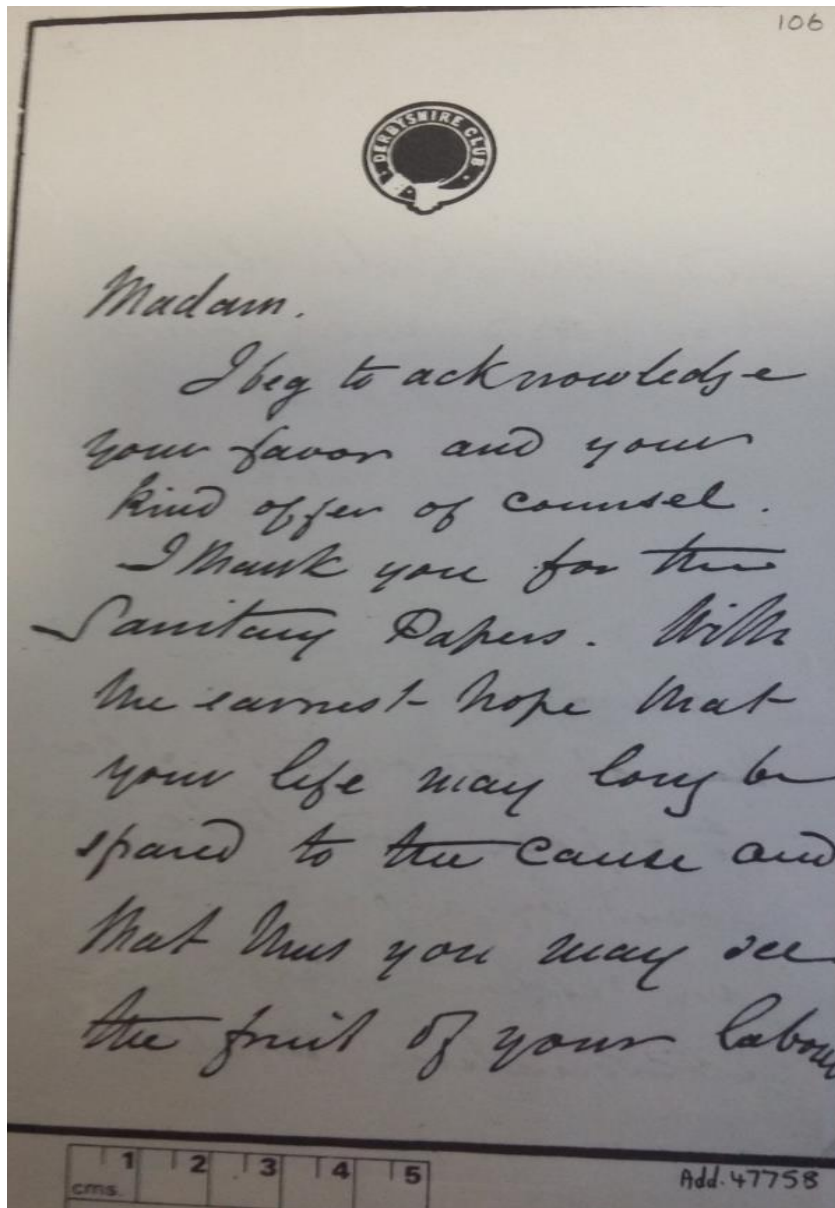 106
DERBYSHIRE CLUB
Madam.
I beg to acknowledge
your favor and your
kind offer of counsel.
I thank you for the
Sanitary Papers. With
the earnest hope that
your life may long be
spared to the cause and
that thus you may see
the fruit of your labou
1 2 3 4 5
cms.
Add. 47758